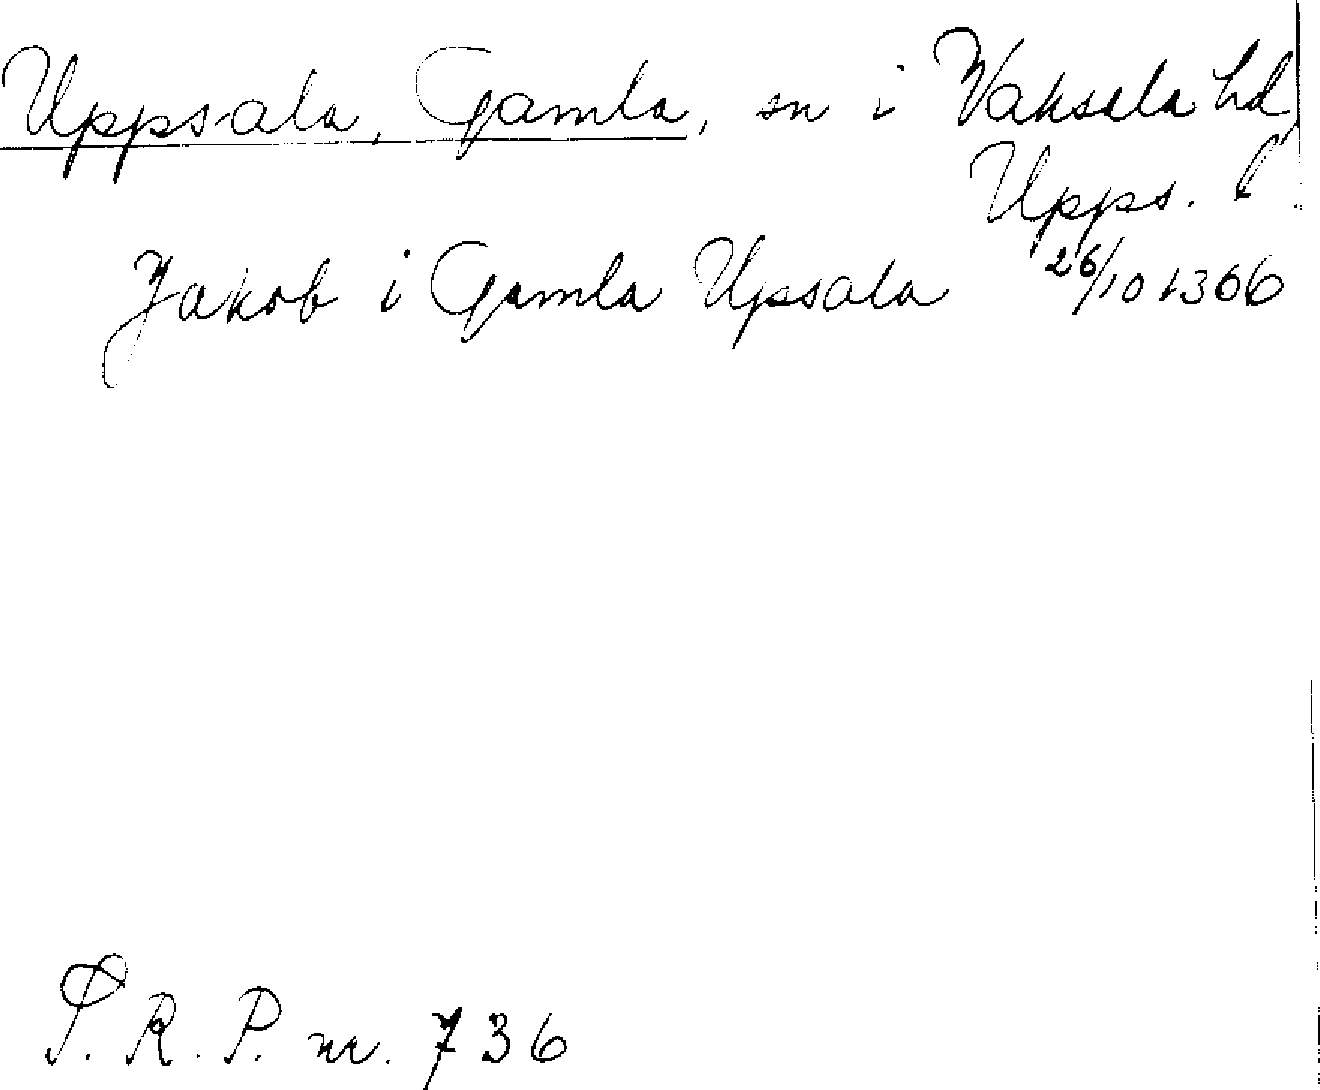 Uppsala, Gamla, sn i Vaksala hd,
Upps. l.
Jakob i Gamla Upsala 26/10 1366
S.R.P. nr. 736